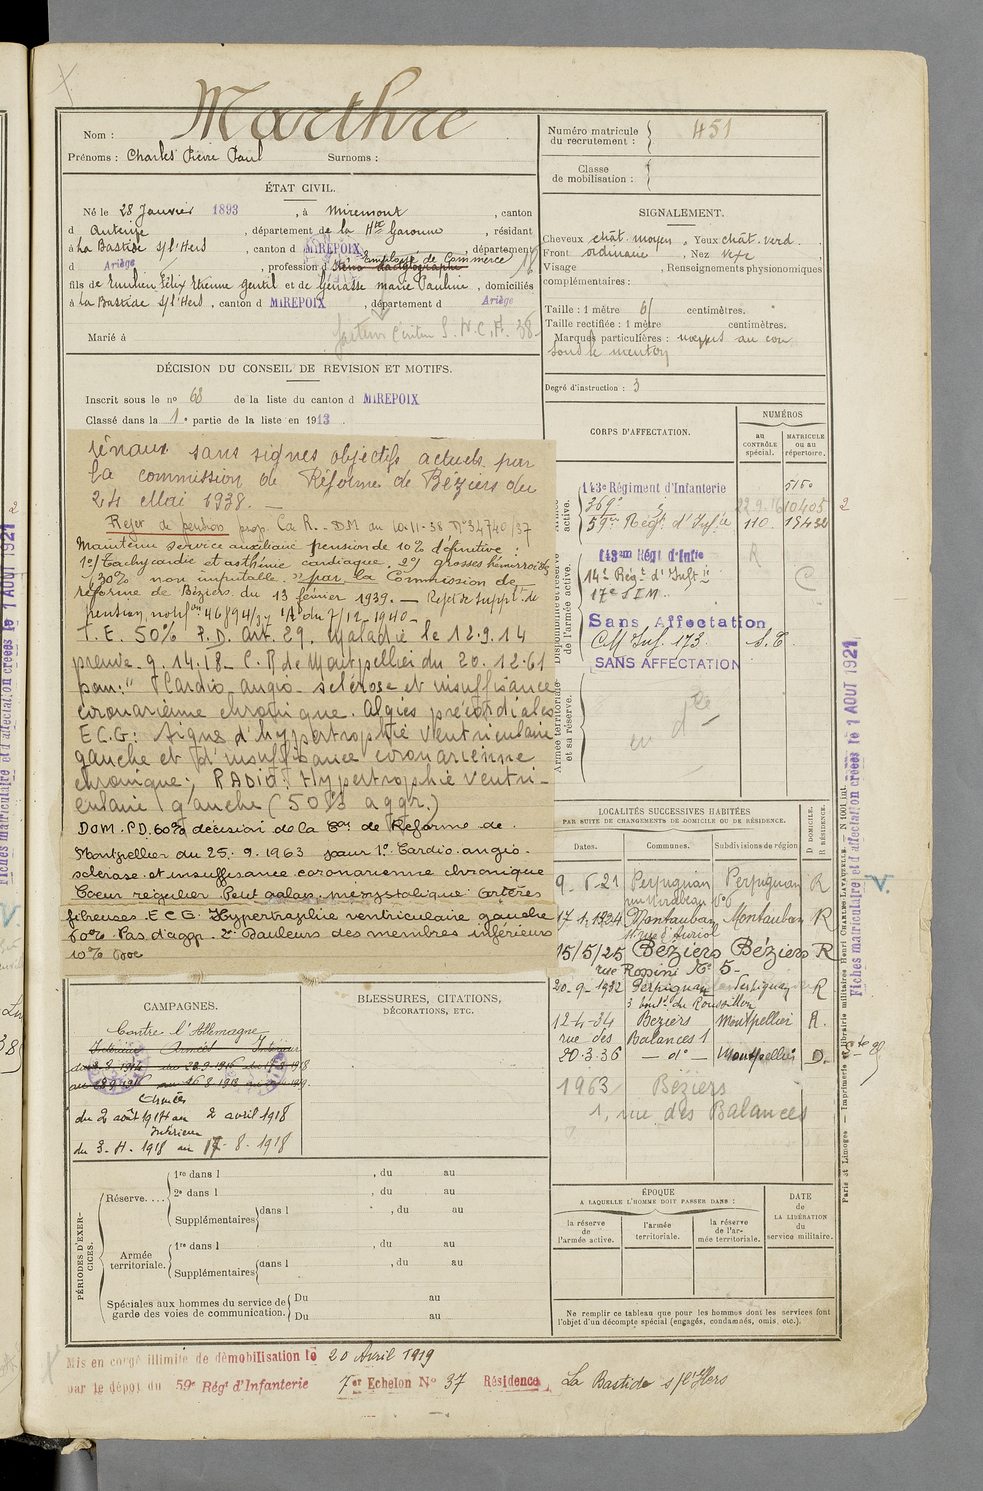 Marthre
Nom :
Prénoms : Charles Pierre Paul Surnoms :
ÉTAT CIVIL.
Né le 28 Janvier 1893, à Miremont, canton
d'Auterive, département de la Hte Garonne, résidant
à La Bastide s/l'Hers, canton d MIREPOIX, département
d Ariège, profession d Employé de Commerce
fils de Emilien Félix Etienne Gentil et de Génasse Marie Pauline, domiciliés
à La Bastide s/l'Hers, canton d MIREPOIX, département d Ariège
Marié à
facteur S.N.C.F. 38
DÉCISION DU CONSEIL DE REVISION ET MOTIFS.
Inscrit sous le no 68 de la liste du canton d MIREPOIX
Classé dans la 1e partie de la liste en 1913.
rénaux sans signes objectifs actuels par
la commission de Réforme de Béziers du
24 Mai 1938. —
Rejet de pension prop. C.R. - DM du 10-11-38 No 34740/37
Maintenu service auxiliaire pension de 10% définitive :
1o/ Tachycardie et asthénie cardiaque. 2o/ grosses hémorroïdes
30% non imputable. » par la Commission de
réforme de Béziers du 13 février 1939. — Rejet de suppt. de
pension, notif on 46894/37 du 7/12 1940 —
T.E. 50% P.D. art. 29. maladie le 12.9.14
preuve. 9.14.18 - C.R de Montpellier du 20.12.61
pour : "Cardio angio-sclérose et insuffisance
coronarienne chronique. Algies précordiales
E C.G : Signe d'hypertrophie ventriculaire
gauche et d'insuffisance coronarienne
chronique ; RADIO : Hypertrophie ventri-
culaire gauche (50% aggr.)
DOM. P.D. 60% décision de la Con de Réforme de
Montpellier du 25.9.1963 pour 1o Cardio angio-
sclérose et insuffisance coronarienne chronique
Coeur régulier. Petit galop mésystolique. Artères
fibreuses. E C G : Hypertrophie ventriculaire gauche
60% Pas d'aggr. 2o Douleurs des membres inférieurs
10% Doc
CAMPAGNES.
BLESSURES, CITATIONS,
DÉCORATIONS, ETC.
Contre l'Allemagne
Intérieur Armées Intérieur
Armées
du 2 août 1914 au 2 avril 1918
Intérieur
du 3.4.1918 au 17.8.1918
PÉRIODES D'EXERCICES.
Réserve....
1re dans l , du au
2e dans l , du au
Supplémentaires dans l , du au
Armée territoriale.
1re dans l , du au
Supplémentaires dans l , du au
Spéciales aux hommes du service de garde des voies de communication.
Du au
Du au
Mis en congé illimité de démobilisation le 20 Avril 1919
par le dépôt du 59e Régt d'Infanterie 7er Echelon No 37 Résidence, La Bastide s/l'Hers
Numéro matricule du recrutement : 451
Classe de mobilisation :
SIGNALEMENT.
Cheveux chât. moyen. Yeux chât. verd.
Front ordinaire, Nez
Visage , Renseignements physionomiques
complémentaires :
Taille : 1 mètre 61 centimètres.
Taille rectifiée : 1 mètre centimètres.
Marques particulières : au cou
sous le menton
Degré d'instruction : 3
CORPS D'AFFECTATION.
NUMÉROS
au CONTRÔLE spécial.
MATRICULE ou au répertoire.
Armée active.
143e Régiment d'Infanterie 5150
369e 22.9.16 10405
59e Régt d'Infie 110 15432
Disponibilité et réserve de l'armée active.
143em Régt d'Infie
14e Régt d'Inft ie
17e S I M
Sans Affectation
CM Inf. 173 S.E.
SANS AFFECTATION
Armée territoriale et sa réserve.
LOCALITÉS SUCCESSIVES HABITÉES
PAR SUITE DE CHANGEMENTS DE DOMICILE OU DE RÉSIDENCE.
Dates. Communes. Subdivisions de région D. DOMICILE. R. RÉSIDENCE.
9.5.21 Perpignan Perpignan R
rue Mirabeau No 6
17.1.1924 Montauban Montauban R
rue d'Auriol
15/5/25 Béziers Béziers R
rue Rossini No 5-
20-9-1932 Perpignan Perpignan R
3 boulvd du Roussillon
12-4-34 Beziers Montpellier R.
rue des Balances 1
20.3.36 — do — Montpellier D.
1963 Béziers
1, rue des Balances
ÉPOQUE
A LAQUELLE L'HOMME DOIT PASSER DANS :
la réserve de l'armée active.
l'armée territoriale.
la réserve de l'armée territoriale.
DATE de LA LIBÉRATION du service militaire.
Ne remplir ce tableau que pour les hommes dont les services font
l'objet d'un décompte spécial (engagés, condamnés, omis, etc.).
Fiches matriculaire et d'affectation créées le 1 AOUT 1921
Paris et Limoges. — Imprimerie et librairie militaires Henri CHARLES-LAVAUZELLE. — N 1001 int.
Fiches matriculaire et d'affectation créées le 1 AOUT 1921